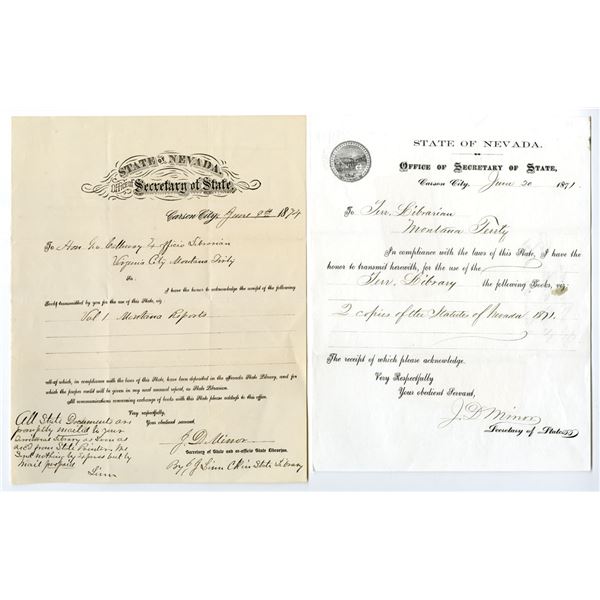 STATE OF NEVADA,
Office of Secretary of State,
Carson City, June 9th 1874
To Hon. Geo. Callaway Ex Officio Librarian
Virginia City Montana Trity
Sir.
I have the honor to acknowledge the receipt of the following
Books transmitted by you for the use of this State, viz
Vol 1 Montana Reports
all of which, in compliance with the laws of this State, have been deposited in the Nevada State Library, and for
which the proper credit will be given in my next annual report, as State Librarian.
All communications concerning exchange of books with this State please address to this office.
Very respectfully,
Your obedient servant,
J. D. Minor
Secretary of State and ex-officio State Librarian.
By C J Linn Clk in State Library
All State Documents are
promptly mailed to your
Territorial Library as soon as
rec'd from State Printer. We
Send nothing by Express but by
mail prepaid
Linn
STATE OF NEVADA.
OFFICE OF SECRETARY OF STATE,
Carson City, June 30 1871.
To Terr. Librarian
Montana Terity
In compliance with the laws of this State, I have the
honor to transmit herewith, for the use of the
Terr. Library the following Books, viz:
2 copies of the Statutes of Nevada 1871.
The receipt of which please acknowledge.
Very Respectfully
Your obedient Servant,
J. D. Minor
Secretary of State